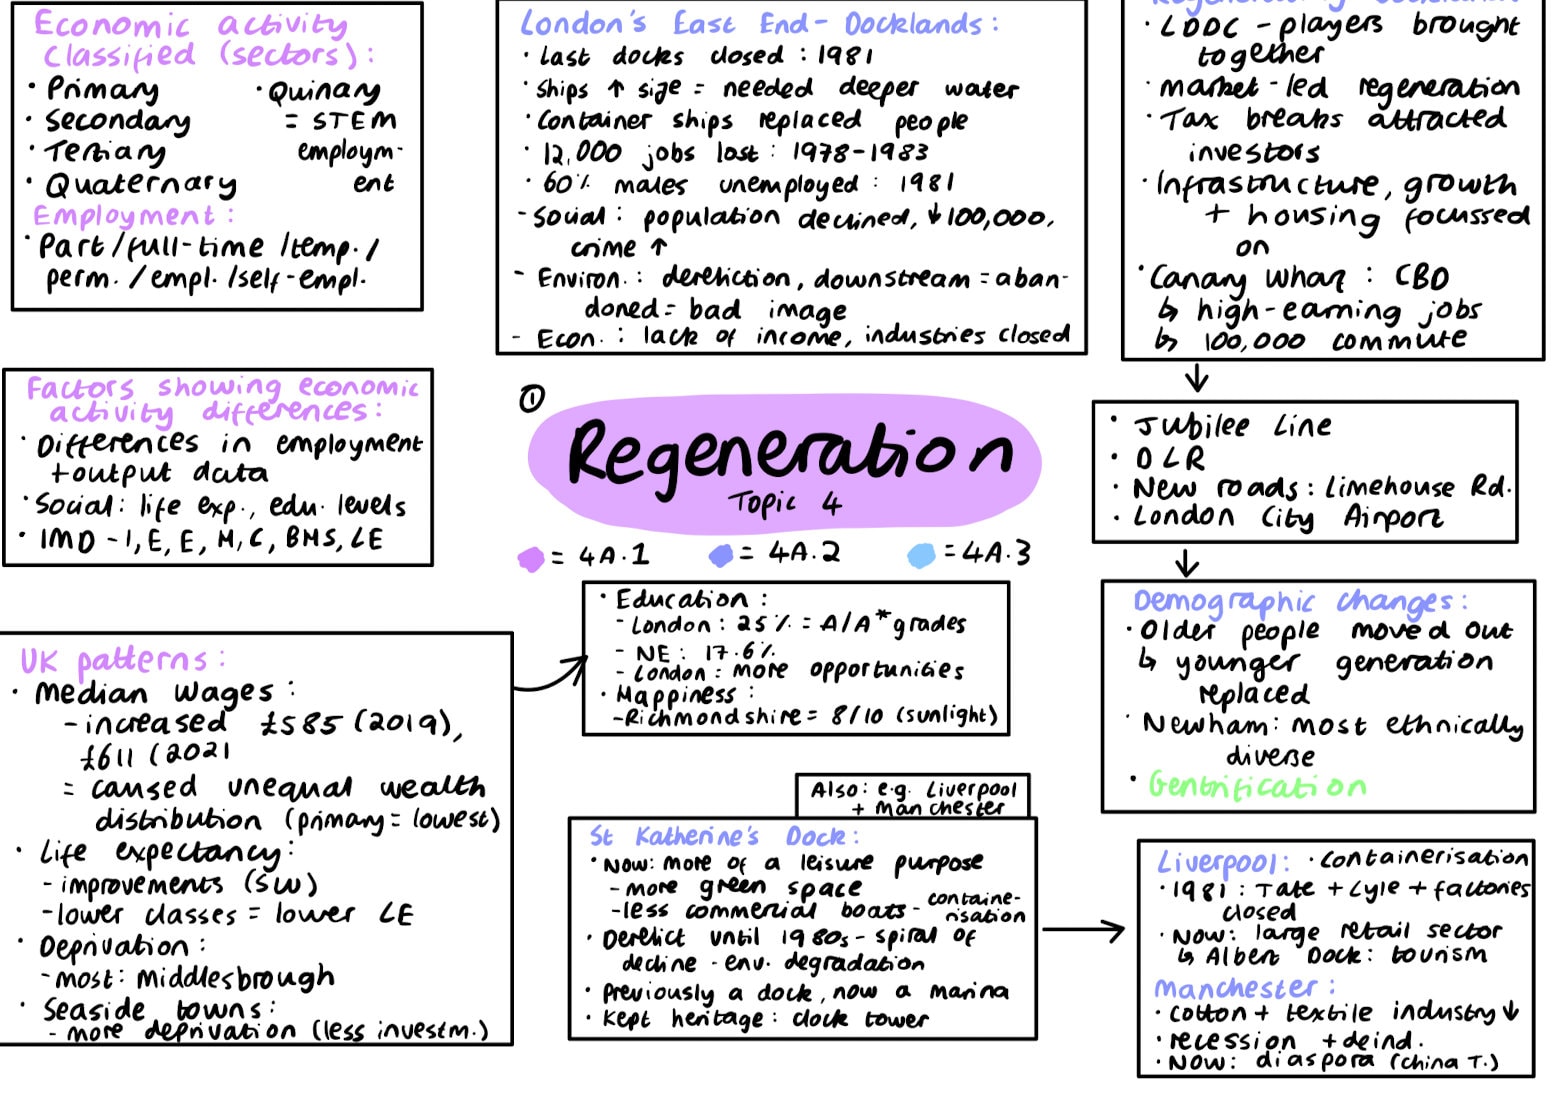 Economic activity
classified (sectors):
· Primary
· Secondary
· Tertiary
· Quaternary
· Quinary
= STEM
employm-
ent
Employment:
· Part/full-time/temp./
perm./empl./self-empl.
London's East End- Docklands:
· Last docks closed: 1981
· Ships ↑ size = needed deeper water
· Container ships replaced people
· 12,000 jobs lost: 1978-1983
· 60% males unemployed: 1981
- Social: population declined, ↓100,000,
crime ↑
- Environ.: dereliction, downstream = aban-
doned = bad image
- Econ.: lack of income, industries closed
· LDDC - players brought
together
· market-led regeneration
· Tax breaks attracted
investors
· Infrastructure, growth
+ housing focussed
on
· Canary Wharf: CBD
↳ high-earning jobs
↳ 100,000 commute
Factors showing economic
activity differences:
· Differences in employment
+output data
· Social: life exp., edu. levels
· IMD - I, E, E, H, C, BHS, LE
①
Regeneration
Topic 4
= 4A.1
= 4A.2
= 4A.3
· Jubilee Line
· DLR
· New roads: Limehouse Rd.
· London City Airport
· Education:
- London: 25% = A/A* grades
- NE: 17.6%
- London = more opportunities
· Happiness:
- Richmondshire = 8/10 (sunlight)
Demographic changes:
· Older people moved out
↳ younger generation
replaced
· Newham: most ethnically
diverse
· Gentrification
UK patterns:
· Median wages:
- increased £585 (2019),
£611 (2021
= caused unequal wealth
distribution (primary = lowest)
· Life expectancy:
- improvements (SW)
- lower classes = lower LE
· Deprivation:
- most: Middlesbrough
· Seaside towns:
- more deprivation (less investm.)
Also: e.g. Liverpool
+ Manchester
St Katherine's Dock:
· Now: more of a leisure purpose
- more green space
- less commercial boats - containe-
risation
· Derelict until 1980s - spiral of
decline - env. degradation
· Previously a dock, now a marina
· Kept heritage: clock tower
Liverpool: · containerisation
· 1981: Tate + Lyle + factories
closed
· Now: large retail sector
↳ Albert Dock: tourism
Manchester:
· cotton + textile industry ↓
· recession + deind.
· Now: diaspora (China T.)